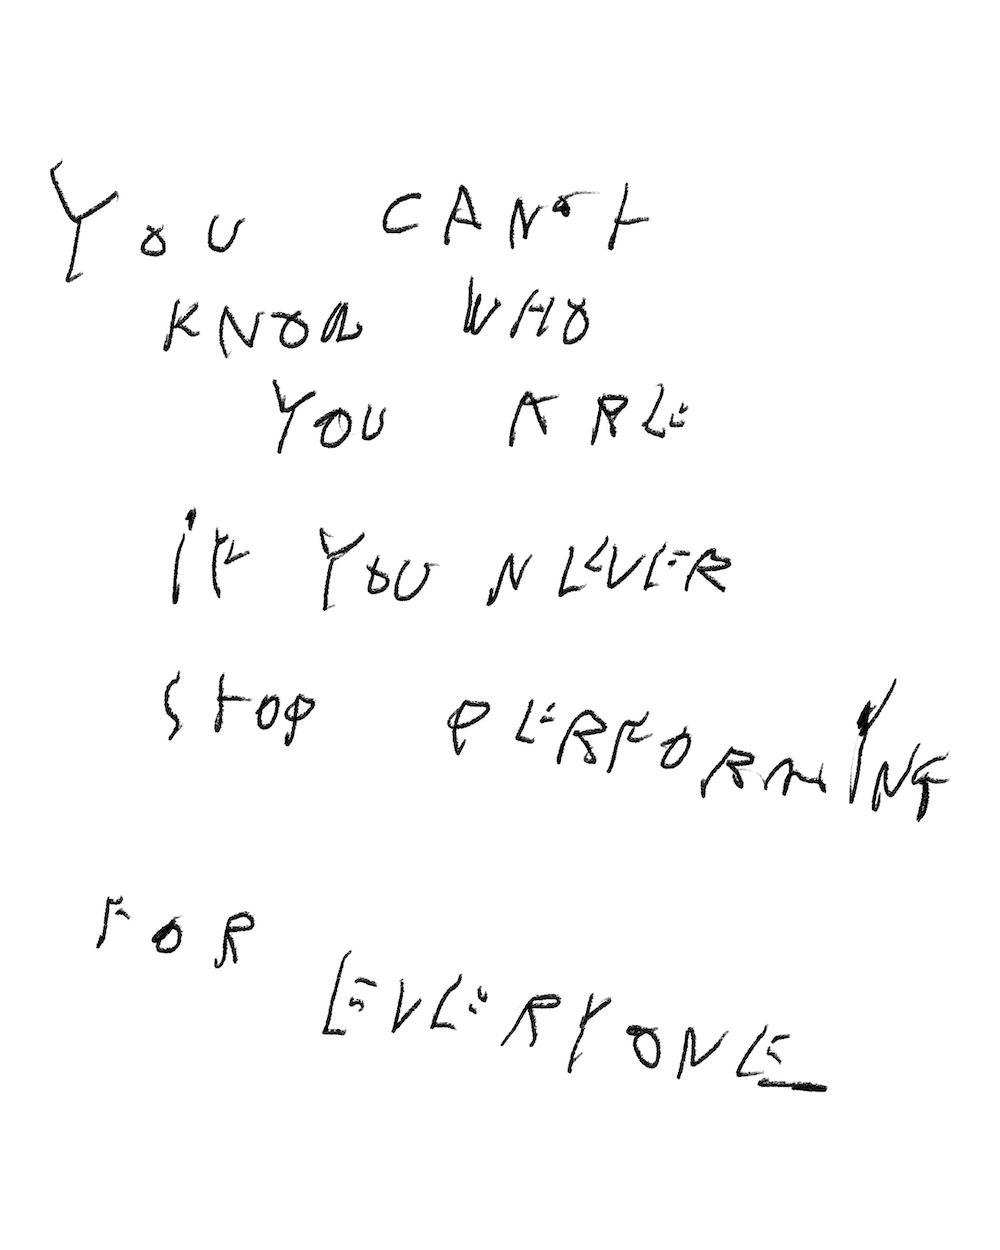 YOU CAN'T
KNOW WHO
YOU ARE
iF YOU NEVER
STOP PERFORMING
FOR EVERYONE